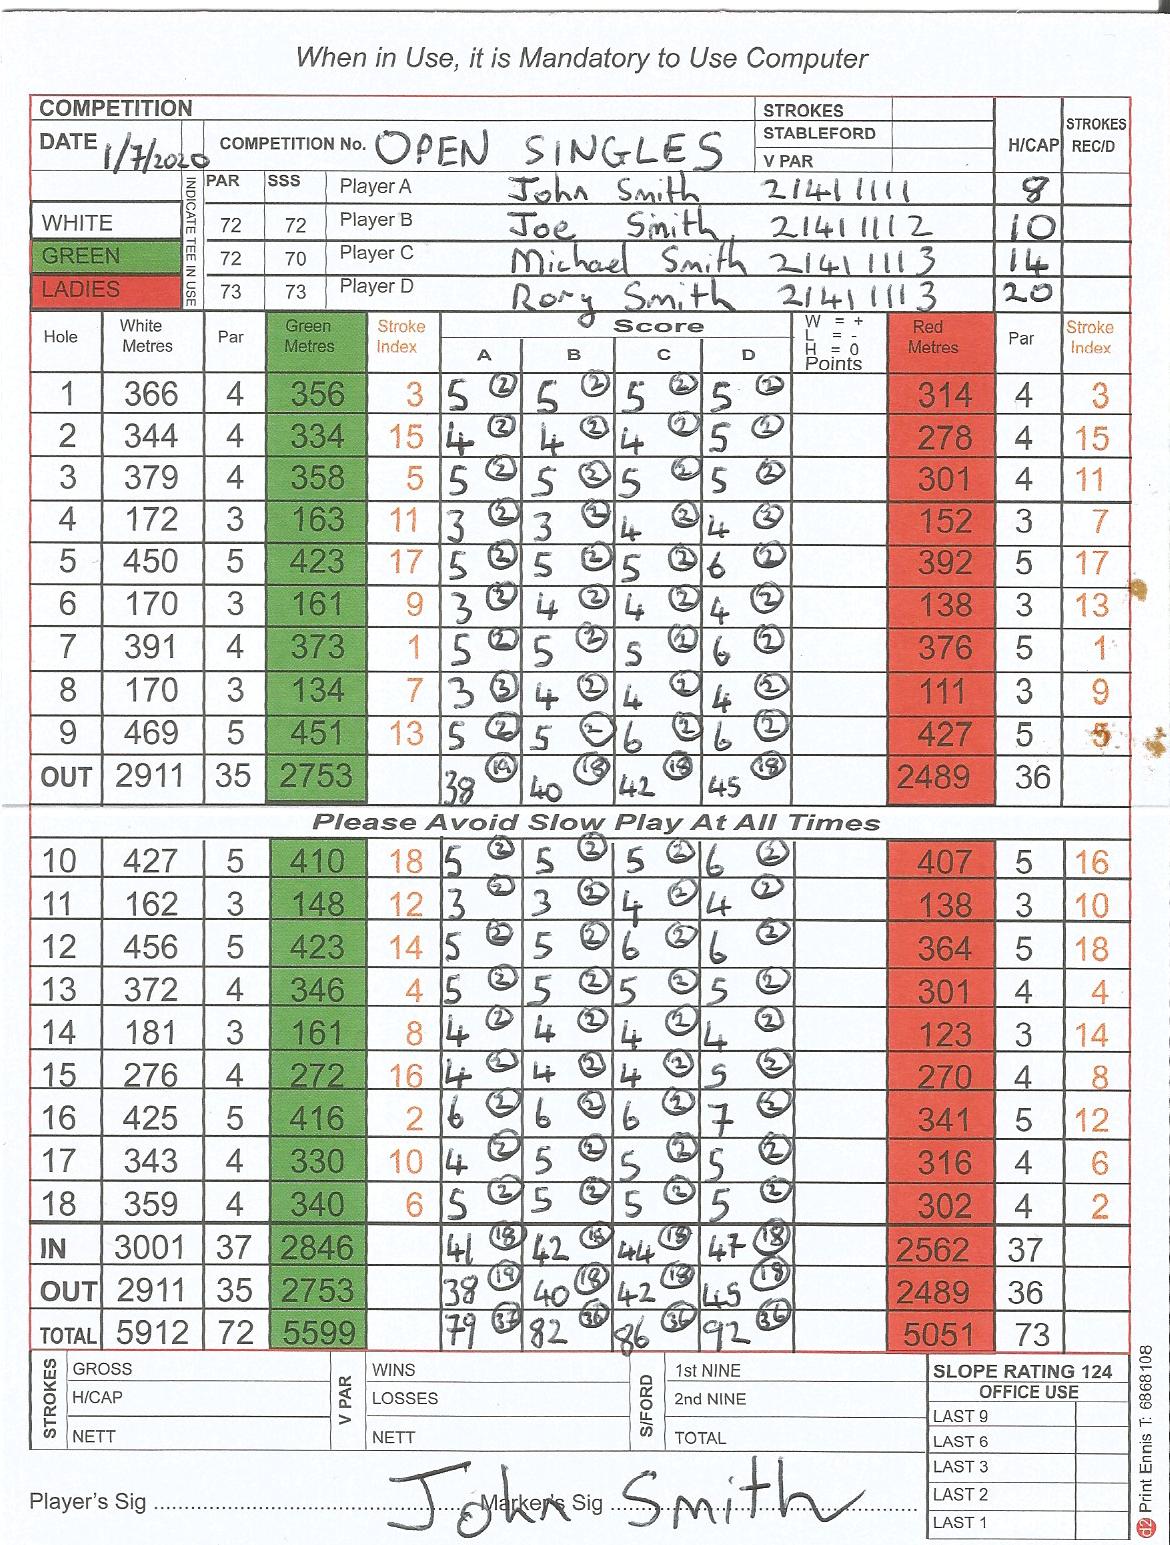 When in Use, it is Mandatory to Use Computer
COMPETITION
DATE 1/7/2020 COMPETITION No. OPEN SINGLES
STROKES
STABLEFORD
V PAR
H/CAP
STROKES REC/D
INDICATE TEE IN USE
PAR SSS Player A John Smith 21411111 8
WHITE 72 72 Player B Joe Smith 21411112 10
GREEN 72 70 Player C Michael Smith 21411113 14
LADIES 73 73 Player D Rory Smith 21411113 20
Hole White Metres Par Green Metres Stroke Index Score A B C D W = + L = - H = 0 Points Red Metres Par Stroke Index
1 366 4 356 3 5 2 5 2 5 2 5 2 314 4 3
2 344 4 334 15 4 2 4 2 4 2 5 2 278 4 15
3 379 4 358 5 5 2 5 2 5 2 5 2 301 4 11
4 172 3 163 11 3 2 3 2 4 2 4 2 152 3 7
5 450 5 423 17 5 2 5 2 5 2 6 2 392 5 17
6 170 3 161 9 3 2 4 2 4 2 4 2 138 3 13
7 391 4 373 1 5 2 5 2 5 2 6 2 376 5 1
8 170 3 134 7 3 3 4 2 4 2 4 2 111 3 9
9 469 5 451 13 5 2 5 2 6 2 6 2 427 5 5
OUT 2911 35 2753 38 19 40 18 42 18 45 18 2489 36
Please Avoid Slow Play At All Times
10 427 5 410 18 5 2 5 2 5 2 6 2 407 5 16
11 162 3 148 12 3 2 3 2 4 2 4 2 138 3 10
12 456 5 423 14 5 2 5 2 6 2 6 2 364 5 18
13 372 4 346 4 5 2 5 2 5 2 5 2 301 4 4
14 181 3 161 8 4 2 4 2 4 2 4 2 123 3 14
15 276 4 272 16 4 2 4 2 4 2 5 2 270 4 8
16 425 5 416 2 6 2 6 2 6 2 7 2 341 5 12
17 343 4 330 10 4 2 5 2 5 2 5 2 316 4 6
18 359 4 340 6 5 2 5 2 5 2 5 2 302 4 2
IN 3001 37 2846 41 18 42 18 44 18 47 18 2562 37
OUT 2911 35 2753 38 19 40 18 42 18 45 18 2489 36
TOTAL 5912 72 5599 79 37 82 36 86 36 92 36 5051 73
STROKES GROSS V PAR WINS S/FORD 1st NINE SLOPE RATING 124
H/CAP LOSSES 2nd NINE OFFICE USE
NETT NETT TOTAL
LAST 9
LAST 6
LAST 3
LAST 2
LAST 1
Player's Sig John Smith Marker's Sig
d2 Print Ennis T: 6868108